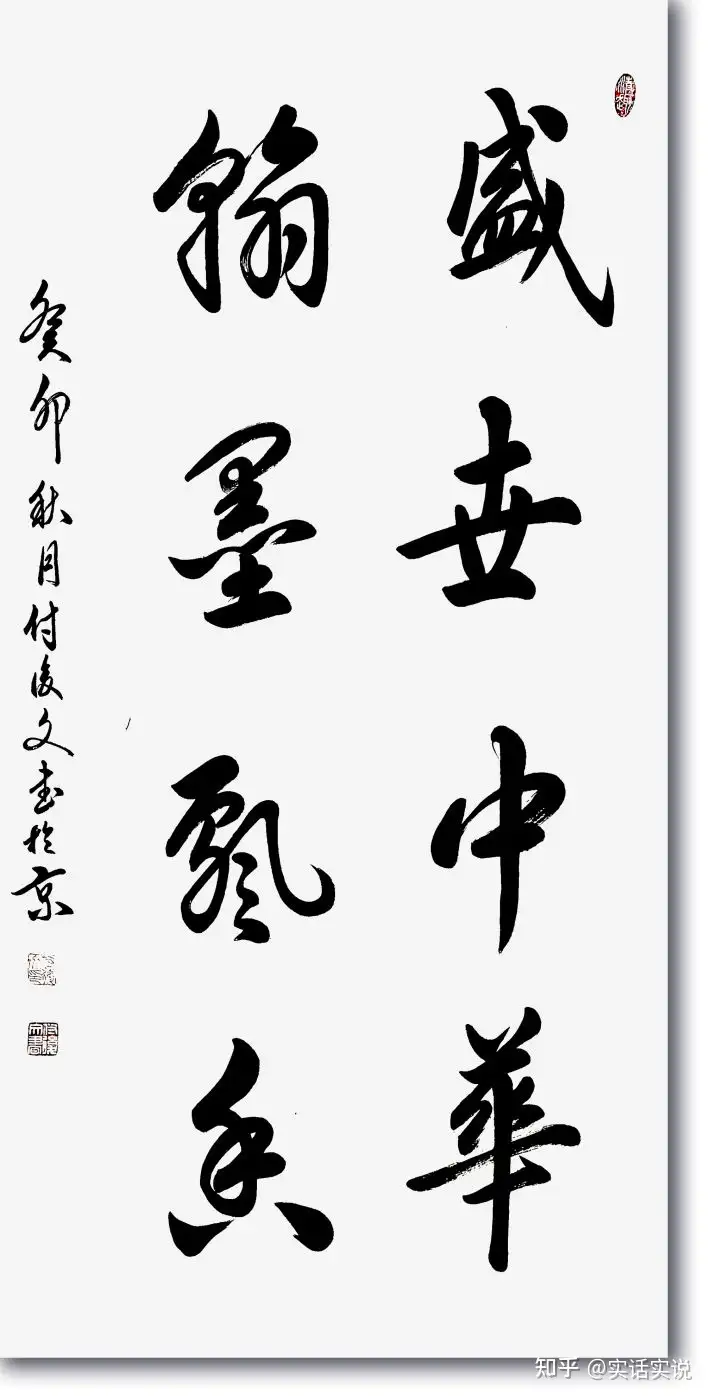 盛世中華
翰墨飘香
癸卯秋月付俊文书於京
知乎 @实话实说